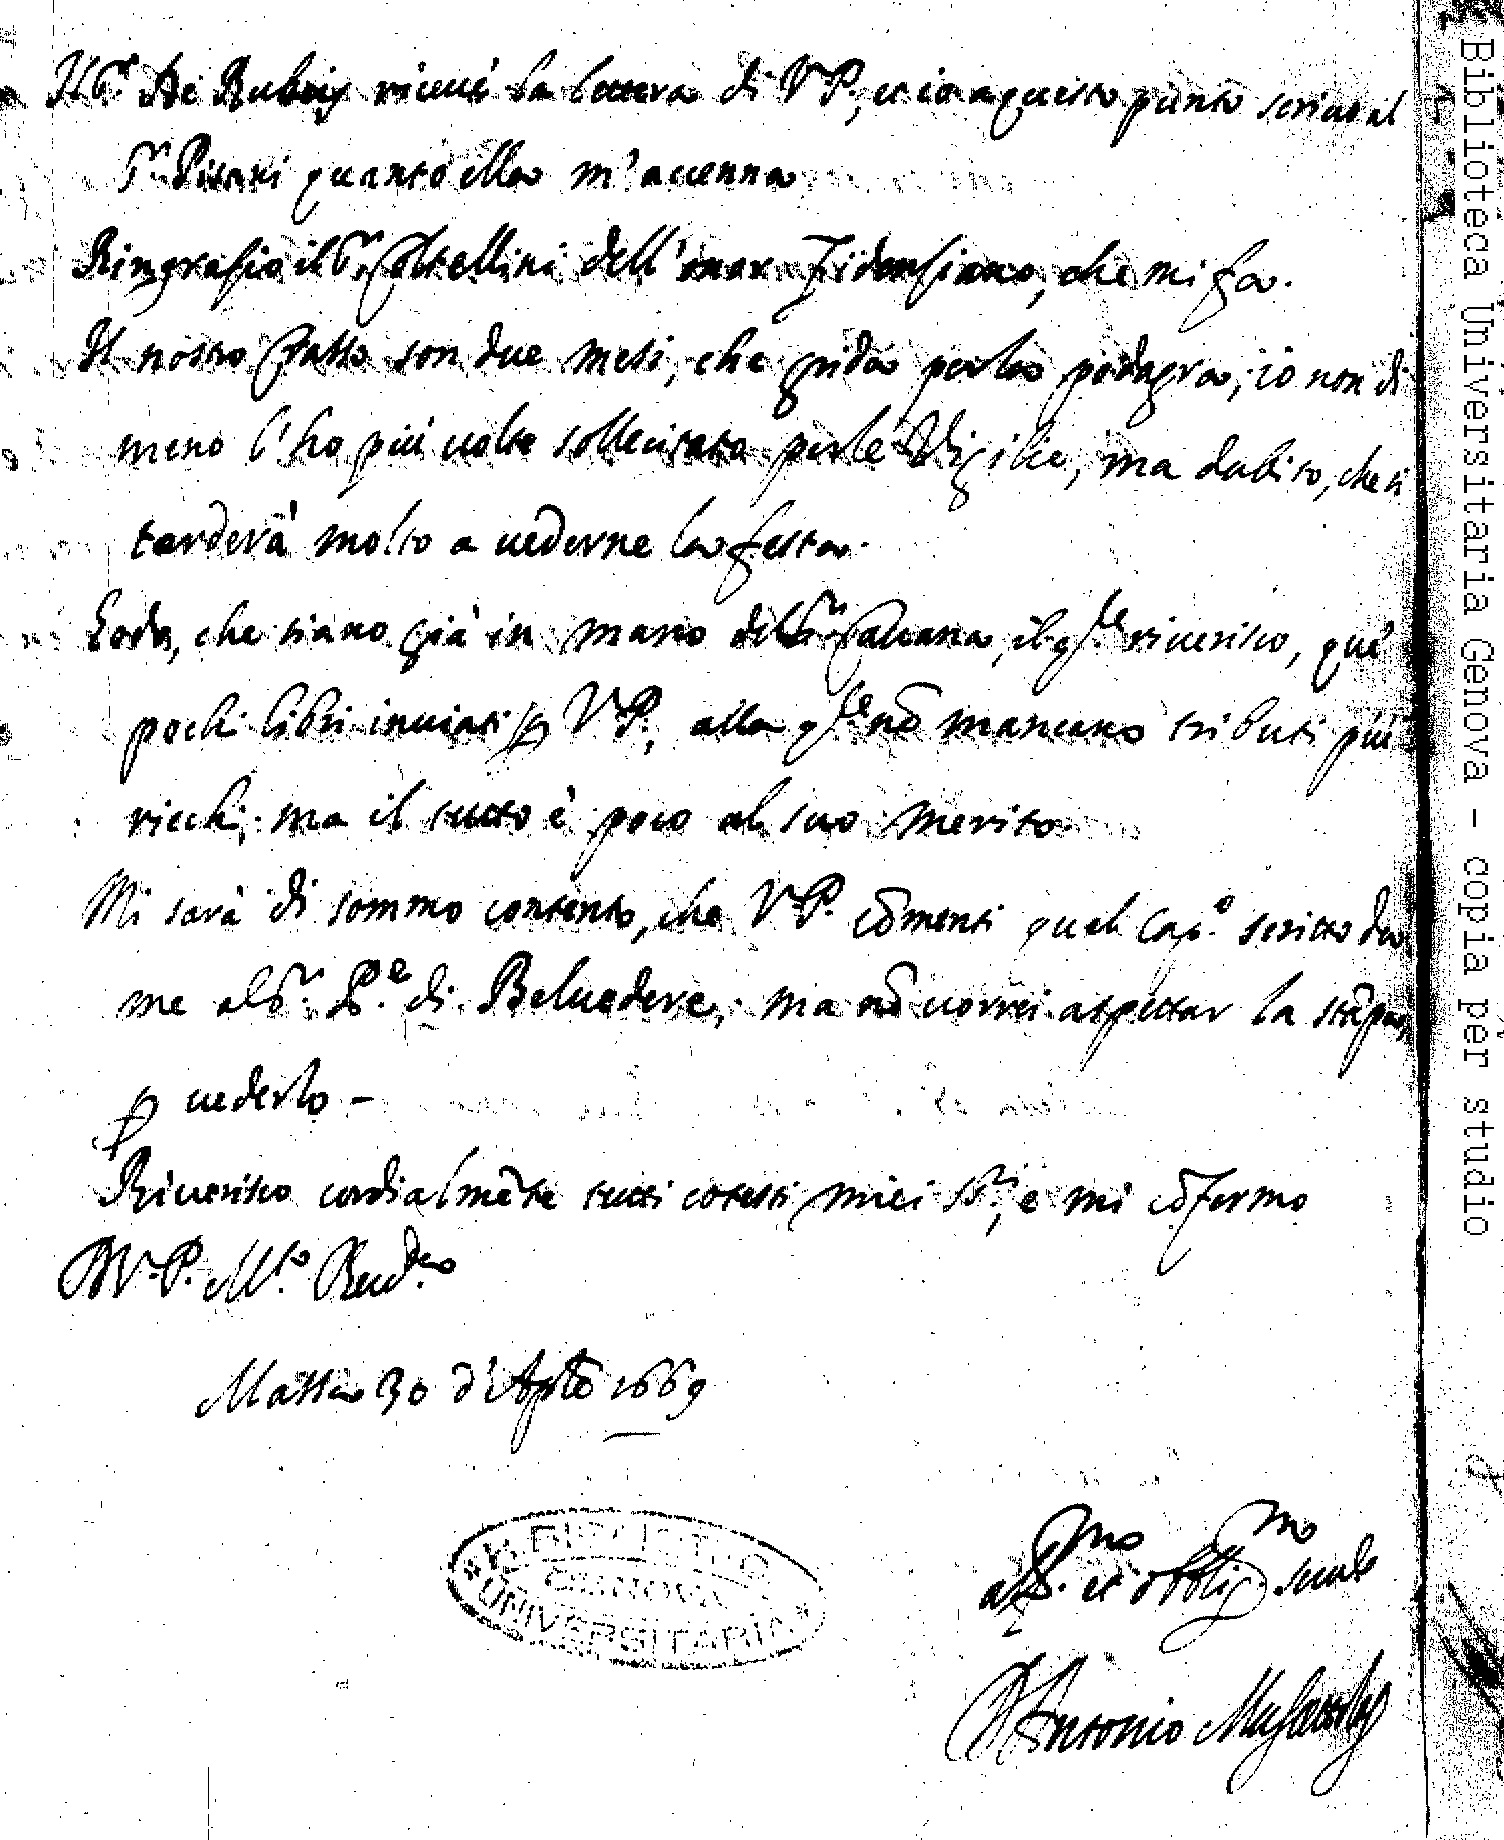 Il Sr. De Rubeis riceué la lettera di V. P., et io a questo punto scriuo al
Sr. Pisani quanto ella m'accenna
Ringrasio il Sr. Astellini dell' onor Fidensiano, che mi fa.
Il nostro Fasso son due mesi, che grida per la podagra; io non di
meno l'ho piú uolte sollecitato per le Vigilie, ma dubito, che si
tarderà molto a uederne la festa.
Lodo, che siano già in mano del Sr. Caluana, il qle riuerisco, que'
pochi libri inuiati p V. P., alla qle nō mancano tributi più
ricchi; ma il tutto è poco al suo merito.
Mi sarà di sommo contento, che V. P. cōmenti quel Capo. scritto da
me al Sr. Ppe. di Beluedere; ma nō uorrei aspettar la stāpa,
p uederlo –
Riuerisco cordialmēte tutti cotesti miei SSri, e mi cōfermo
D V. P. Mto. Reuda
Massa 30 d'Aple 1669
affmo. et obbligmo serule
Antonio Muscettola
R. BIBLIOTECA
GENOVA
* UNIVERSITARIA *
Biblioteca Universitaria Genova - copia per studio